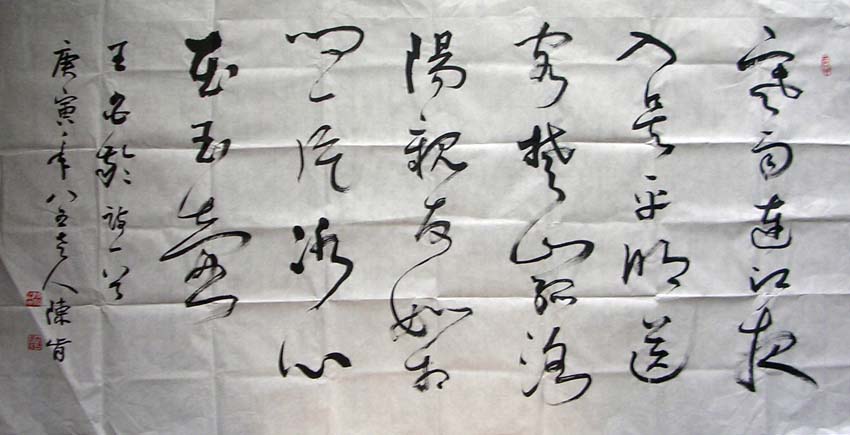 寒雨连江夜
入吴平明送
客楚山孤洛
阳亲友如相
问一片冰心
在玉壶
王昌龄诗一首
庚寅年八五老人陈肯